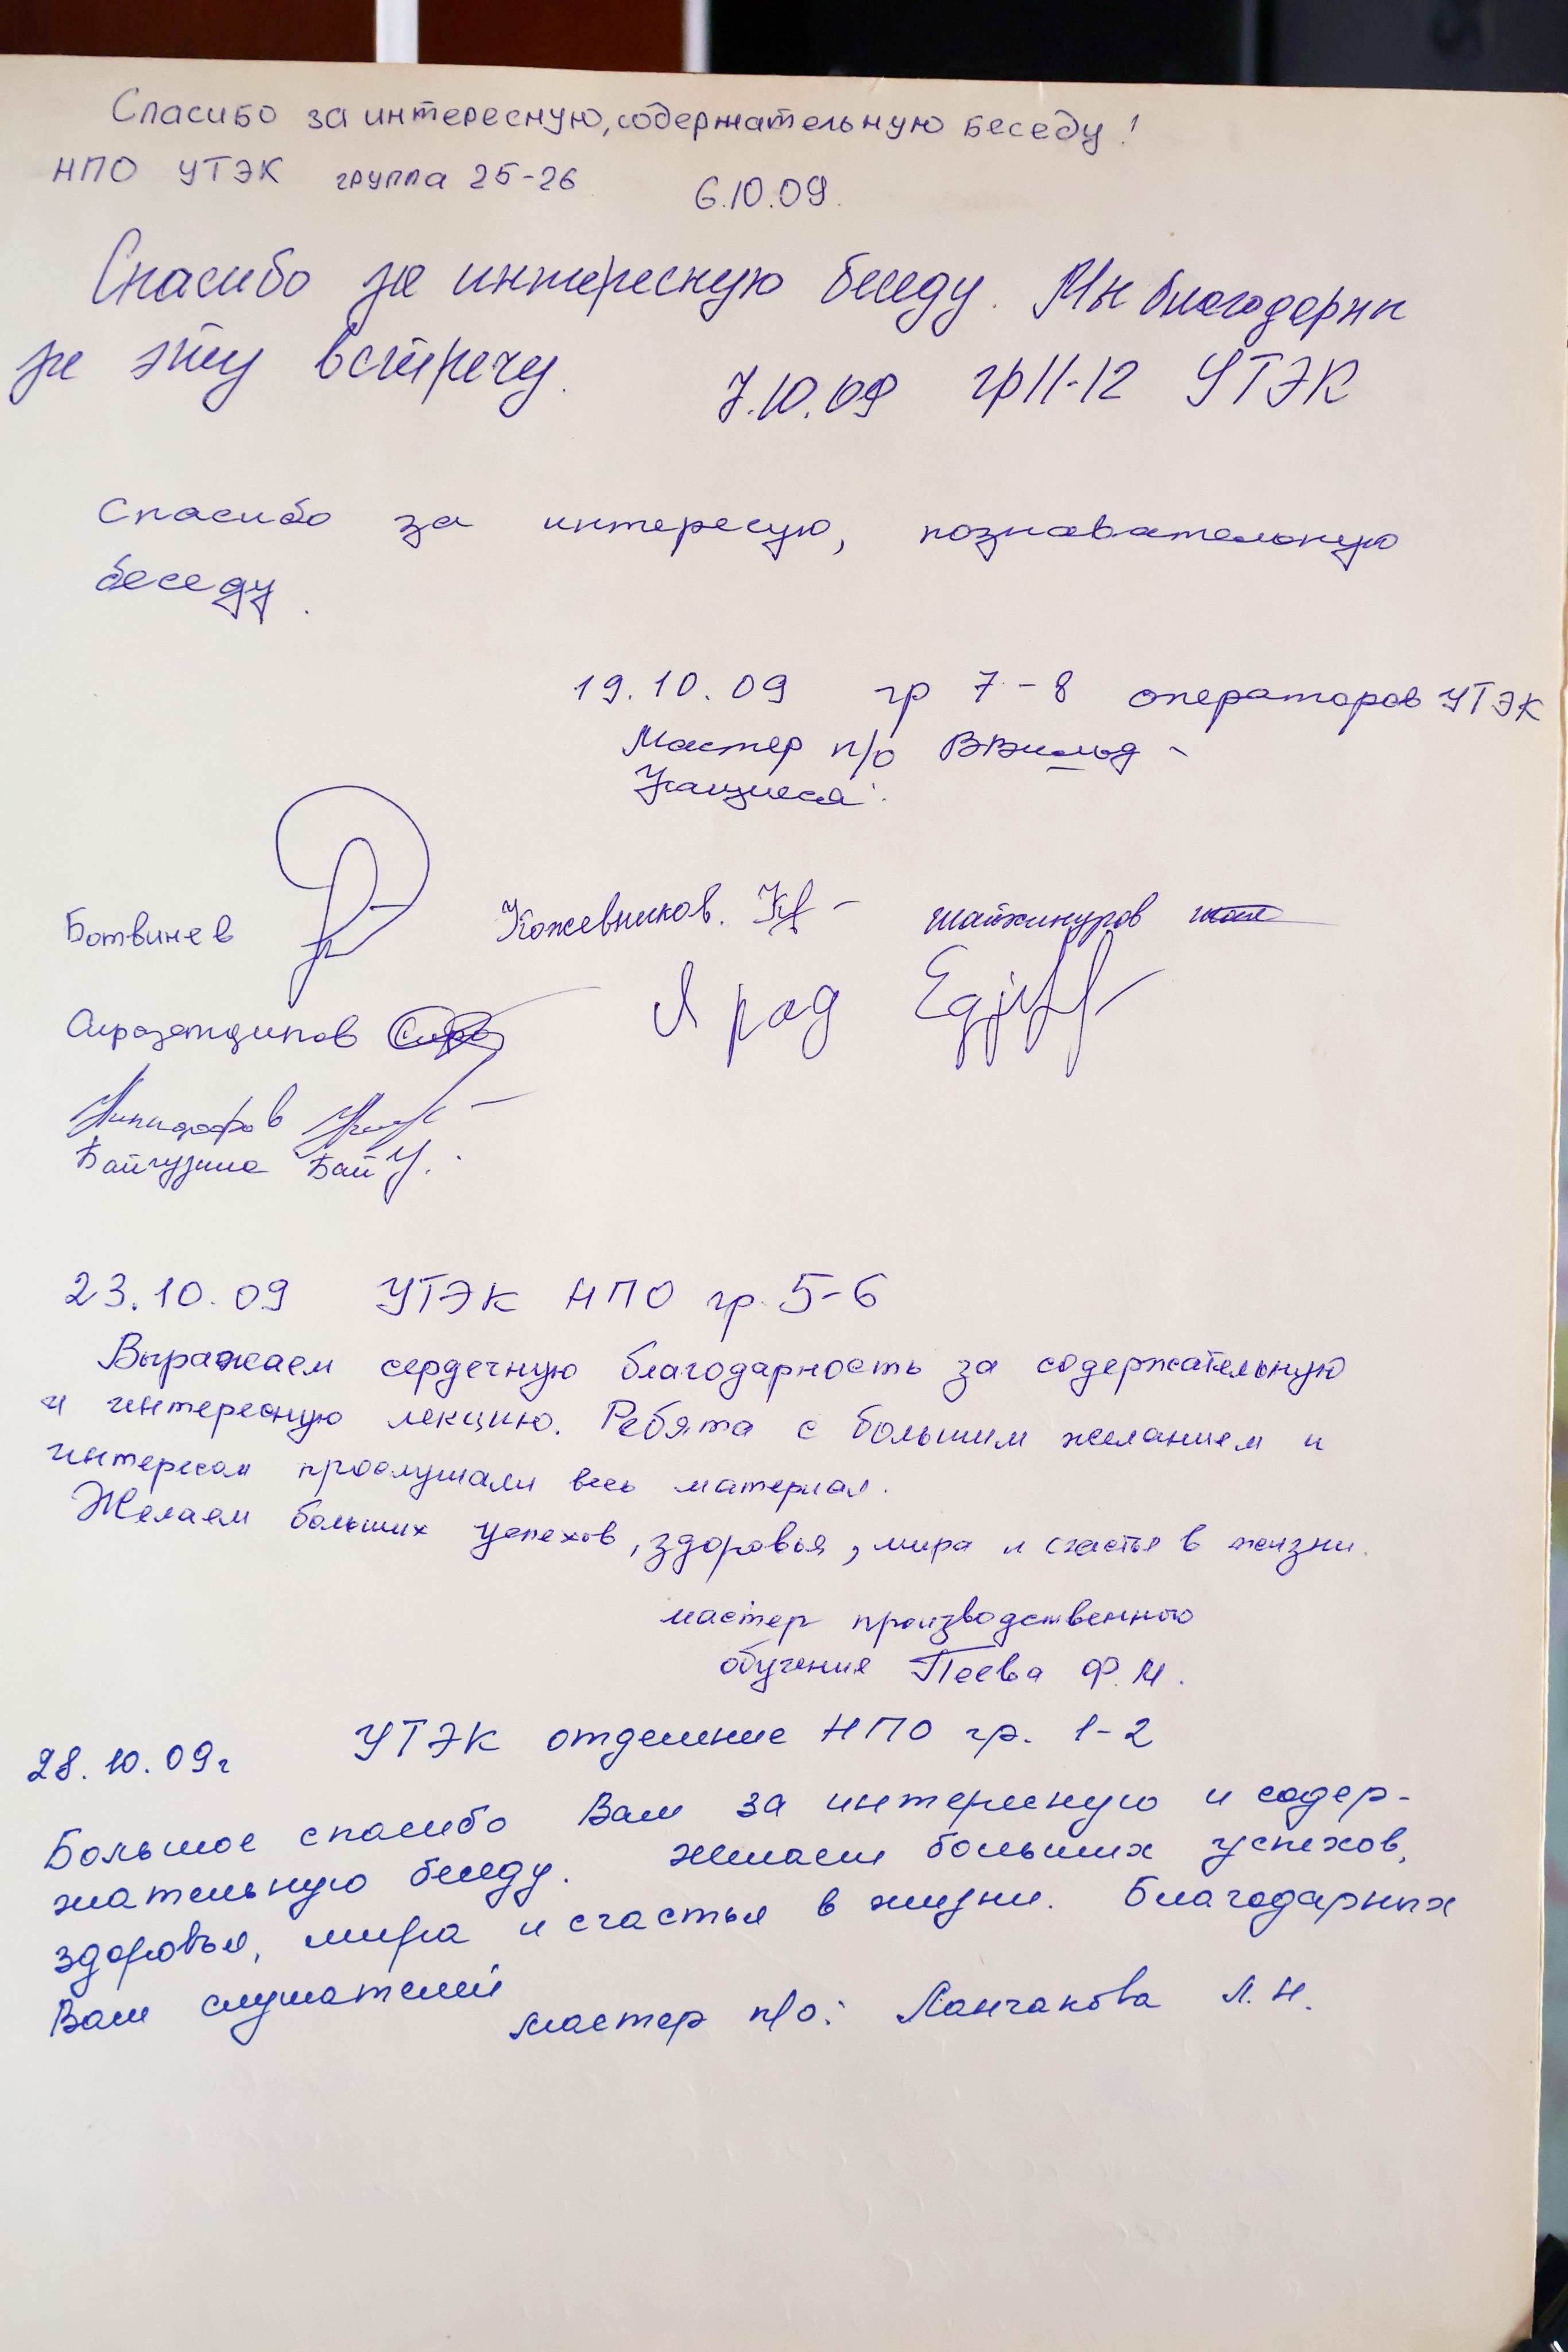 Спасибо за интересную, содержательную беседу!
НПО УТЭК группа 25-26 6.10.09.
Спасибо за интересную беседу. Мы благодарны
за эту встречу. 7.10.09 гр 11-12 УТЭК
Спасибо за интересую, познавательную
беседу.
19.10.09 гр 7-8 операторов УТЭК
Мастер п/о
Учащиеся:
Ботвинев Кожевников. Шайхинуров
Сиразетдинов Я рад
Байгузина Бай
23.10.09 УТЭК НПО гр. 5-6
Выражаем сердечную благодарность за содержательную
и интересную лекцию. Ребята с большим желанием и
интересом прослушали весь материал.
Желаем больших успехов, здоровья, мира и счастья в жизни.
мастер производственного
обучения Ф.М.
28.10.09г УТЭК отделение НПО гр. 1-2
Большое спасибо Вам за интересную и содер-
жательную беседу. Желаем больших успехов,
здоровья, мира и счастья в жизни. Благодарных
Вам слушателей
мастер п/о: Ланчакова Л.Н.